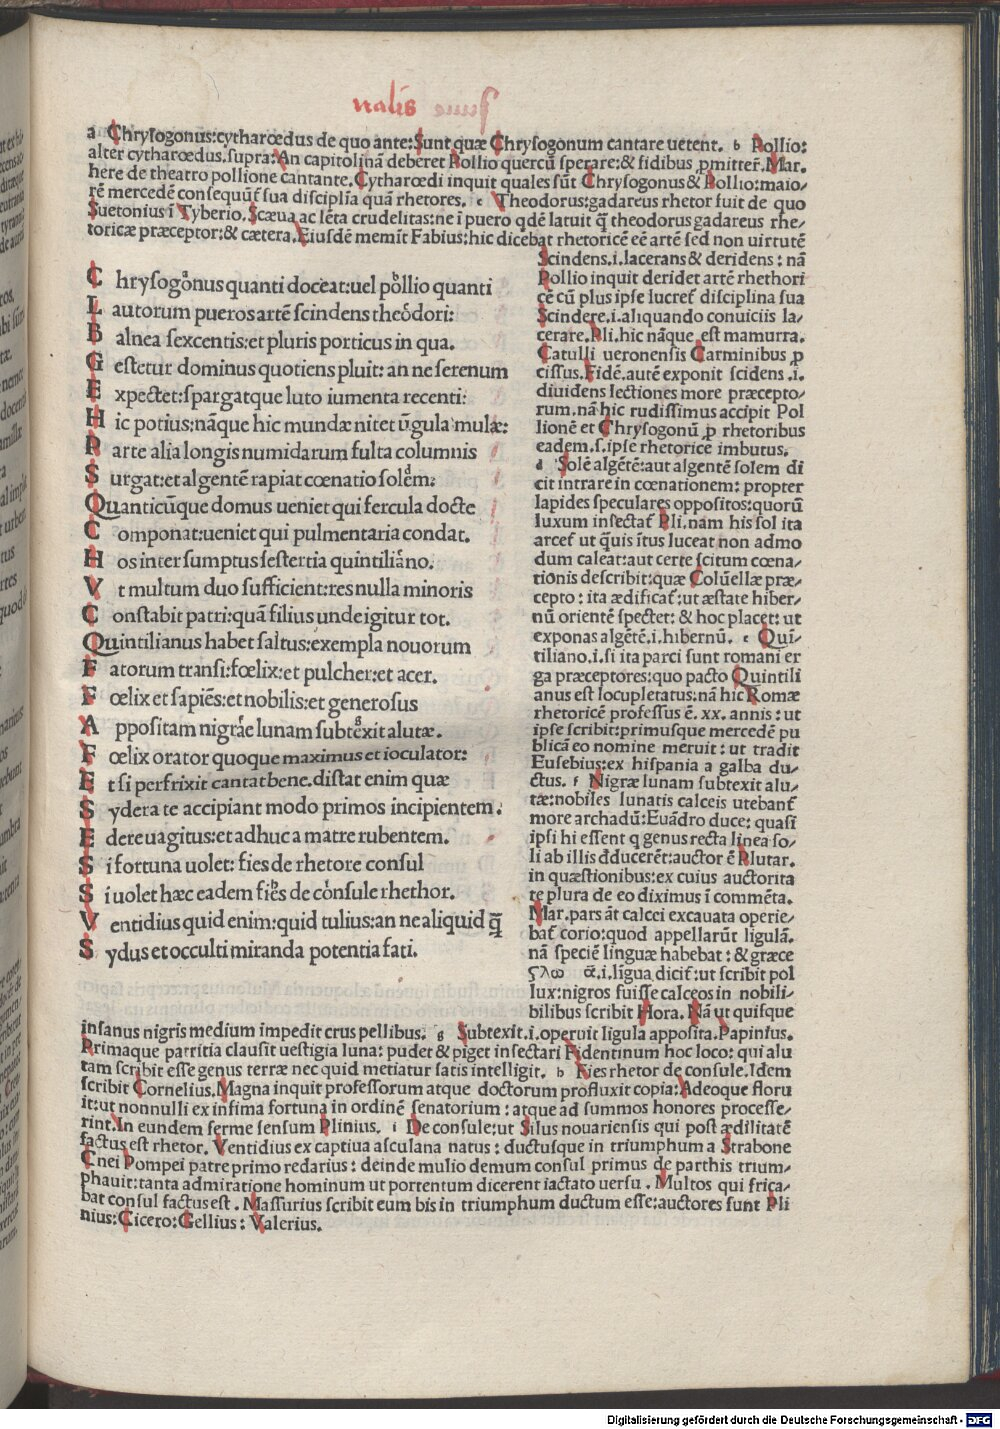 nalis
a Chrysogonus:cytharœdus de quo ante:Sunt quæ Chrysogonum cantare uetent. b Pollio:
alter cytharœdus.supra:An capitolinā deberet Pollio quercū sperare:& fidibus ꝓmitteř.Mar.
here de theatro pollione cantante.Cytharœdi inquit quales sūt Chrysogonus& Pollio:maio/
rē mercedē consequūt̃ sua disciplia quā rhetores. c Theodorus:gadareus rhetor fuit de quo
Suetonius ī Tyberio.Scæua ac lēta crudelitas:ne ī puero qdē latuit q̄ theodorus gadareus rhe/
toricæ præceptor:& cætera.Eiusdē memīt Fabius:hic dicebat rhetoricē eē artē sed non uirtutē
Chrysogonus quanti doceat:uel pollio quanti
Lautorum pueros artē scindens theodori:
Balnea sexcentis:et pluris porticus in qua.
Gestetur dominus quotiens pluit: an ne serenum
Expectet:spargatque luto iumenta recenti:
Hic potius:nāque hic mundæ nitet ūgula mulæ:
Parte alia longis numidarum fulta columnis
Surgat:et algentē rapiat cœnatio solem:
Quanticūque domus ueniet qui fercula docte
Componat:ueniet qui pulmentaria condat.
Hos inter sumptus sestertia quintiliano.
Vt multum duo sufficient:res nulla minoris
Constabit patri:quā filius unde igitur tot.
Quintilianus habet saltus:exempla nouorum
Fatorum transi:fœlix:et pulcher:et acer.
Fœlix et sapiēs:et nobilis:et generosus
Appositam nigræ lunam subtexit alutæ.
Fœlix orator quoque maximus et ioculator:
Et si perfrixit cantat bene.distat enim quæ
Sydera te accipiant modo primos incipientem.
Edere uagitus:et adhuc a matre rubentem.
Si fortuna uolet: fies de rhetore consul
Si uolet hæc eadem fies de cōsule rhethor.
Ventidius quid enim:quid tulius:an ne aliquid q̄̄
Sydus et occulti miranda potentia fati.
Scindens.i.lacerans & deridens : nā
Pollio inquit deridet artē rhethori
cē cū plus ipse lucret̃ disciplina sua
Scindere.i.aliquando conuiciis la/
cerare.Pli.hic nāque est mamurra.
Catulli ueronensis Carminibus ꝓ
cissus.Fidē.autē exponit scidens .i.
diuidens lectiones more præcepto/
rum.nā hic rudissimus accipit Pol
lionē et Chrysogonū ꝓ rhetoribus
eadem.s.ipse rhetorice imbutus.
d Solē algētē:aut algentē solem di
cit intrare in cœnationem: propter
lapides speculares oppositos:quorū
luxum insectat̃ Pli.nam his sol ita
arcet̃ ut q̄uis ītus luceat non admo
dum caleat:aut certe scitum cœna/
tionis describit:quæ Colūellæ præ/
cepto : ita ædificat̃:ut æstate hiber/
nū orientē spectet: & hoc placet: ut
exponas algētē.i.hibernū. e Qui/
tiliano.i.si ita parci sunt romani er
ga præceptores:quo pacto Quintili
anus est locupletatus:nā hic Romæ
rhetoricē professus ē. xx. annis : ut
ipse scribit:primusque mercedē pu
blicā eo nomine meruit : ut tradit
Eusebius:ex hispania a galba du/
ctus. f Nigræ lunam subtexit alu/
tæ:nobiles lunatis calceis utebant̃
more archadū:Euādro duce: quasi
ipsi hi essent q genus recta linea so/
li ab illis đducerēt:auctor ē Plutar.
in quæstionibus:ex cuius auctorita
te plura de eo diximus ī commēta.
Mar.pars āt calcei excauata operie/
bat̃ corio:quod appellarūt ligulā.
nā speciē linguæ habebat : & græce
.i.līgua dicit̃:ut scribit pol
lux:nigros fuisse calceos in nobili/
bilibus scribit Hora.Nā ut quisque
insanus nigris medium impedit crus pellibus. g Subtexit.i.operuit ligula apposita.Papinius.
Primaque patritia clausit uestigia luna: pudet & piget insectari Fidentinum hoc loco: qui alu
tam scribit esse genus terræ nec quid metiatur satis intelligit. h Fies rhetor de consule.Idem
scribit Cornelius.Magna inquit professorum atque doctorum profluxit copia:Adeoque floru
it:ut nonnulli ex infima fortuna in ordinē senatorium : atque ad summos honores processe/
rint.In eundem ferme sensum Plinius. i De consule:ut Silus nouariensis qui post ædilitatē
factus est rhetor. Ventidius ex captiua asculana natus : ductusque in triumphum a Strabone
Cnei Pompei patre primo redarius : deinde mulio demum consul primus de parthis trium/
phauit:tanta admiratione hominum ut portentum dicerent iactato uersu . Multos qui frica/
bat consul factus est . Massurius scribit eum bis in triumphum ductum esse:auctores sunt Pli
nius:Cicero:Gellius : Valerius.
Digitalisierung gefördert durch die Deutsche Forschungsgemeinschaft - DFG